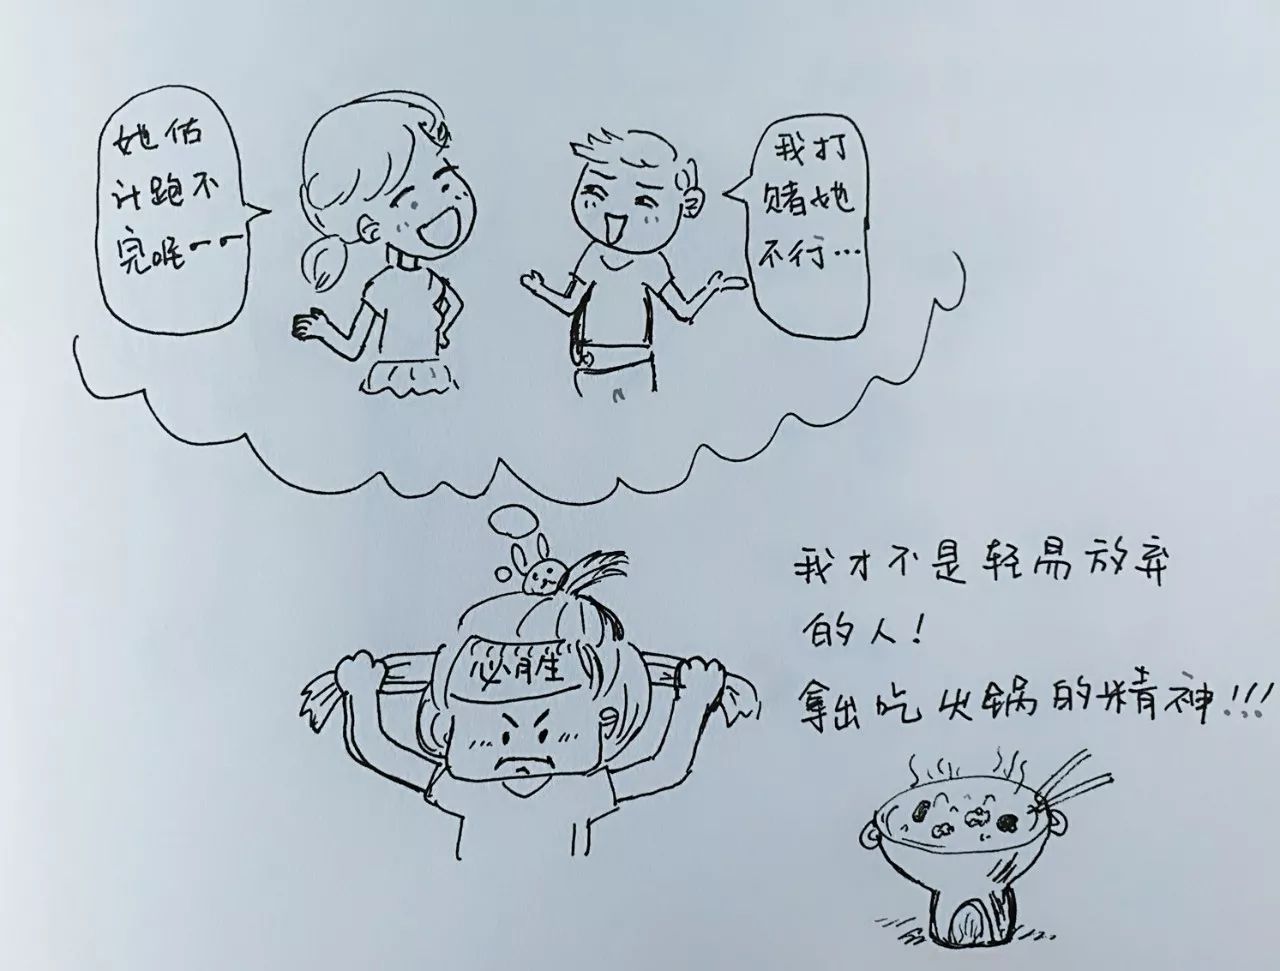 她估
计跑不
完呢~~
我打
赌她
不行…
必胜
我才不是轻易放弃
的人!
拿出吃火锅的精神!!!